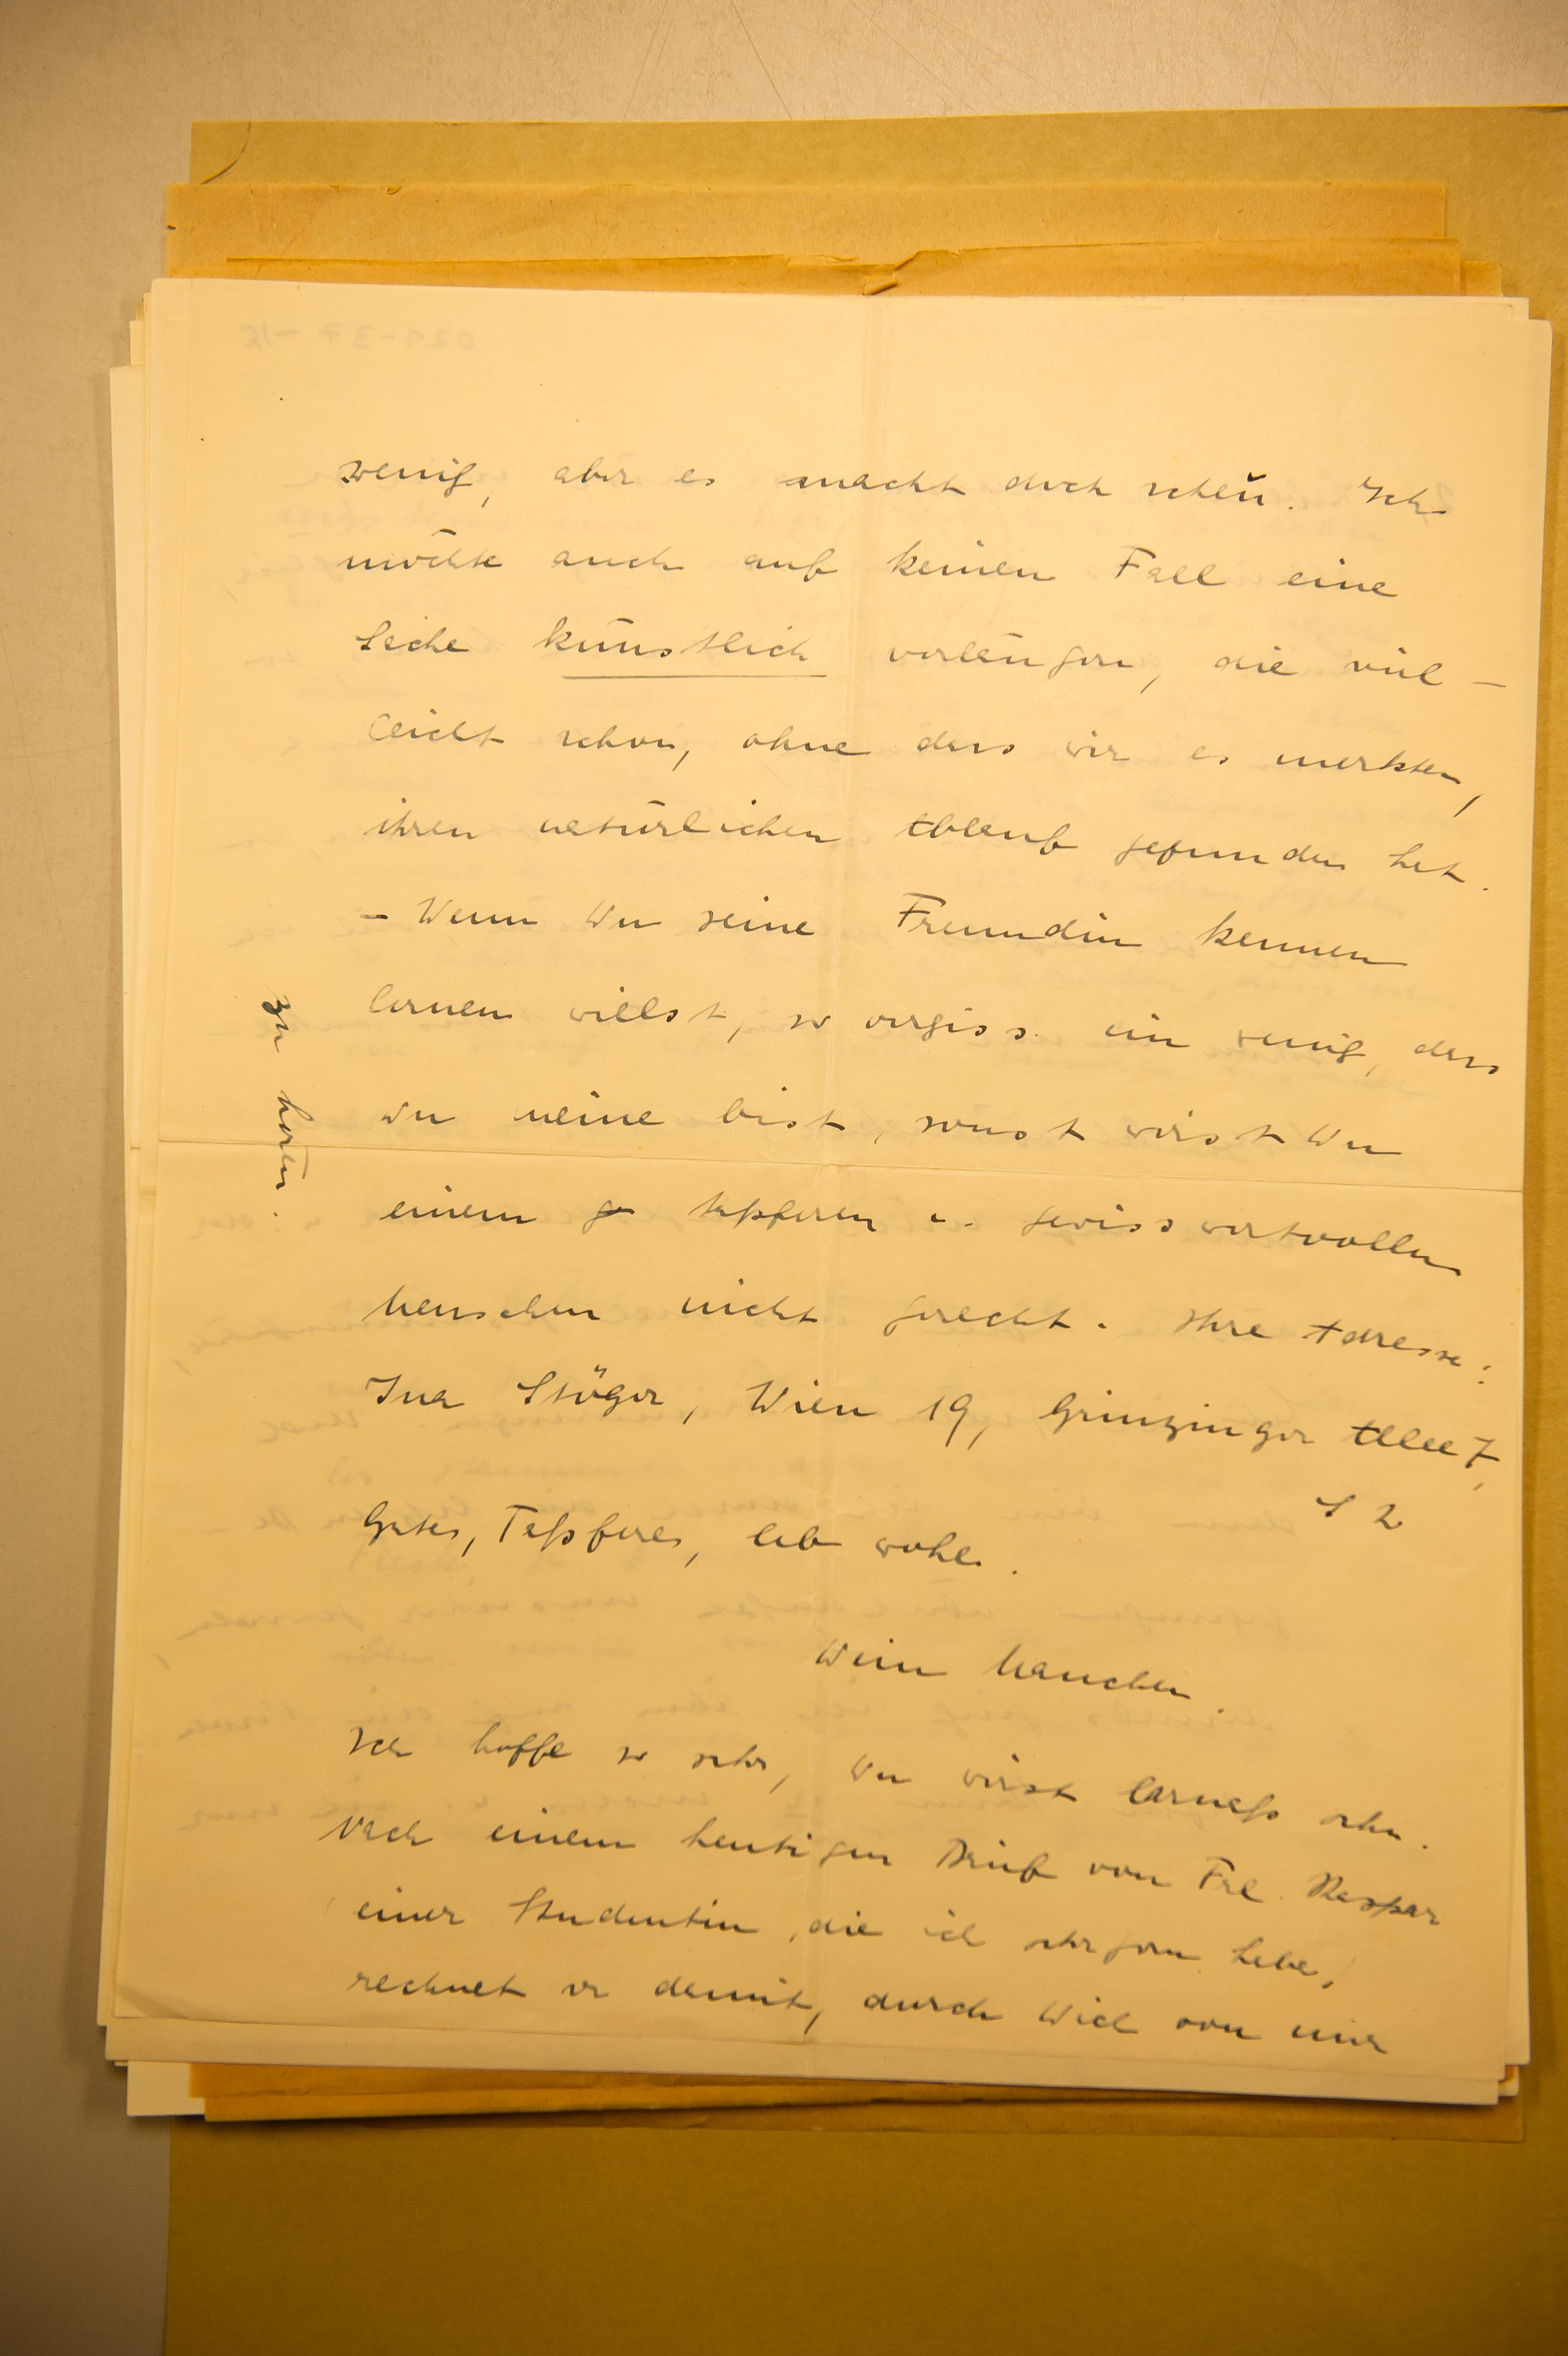 wenig, aber es macht doch scheu. Ich
möchte auch auf keinen Fall eine
Sache künstlich verlängern, die viel-
leicht schon, ohne dass wir es merkten,
ihren natürlichen Ablauf gefunden hat.
- Wenn Du seine Freundin kennen
lernen willst, so vergiss ein wenig, dass
Du meine bist, sonst wirst Du
einem tapferen u. gewiss wertvollen
Menschen nicht gerecht. Ihre Adresse:
Ina Stöger, Wien 19, Grinzinger Allee 7,
S 2
Gutes, Tapferes, leb wohl.
Dein Hannchen.
Ich hoffe so sehr, Du wirst Carnap sehn.
Nach einem heutigen Brief von Frl. Raspar
einer Studentin, die ich sehr gern habe,
rechnet er damit, durch Dich von mir
zu hören.